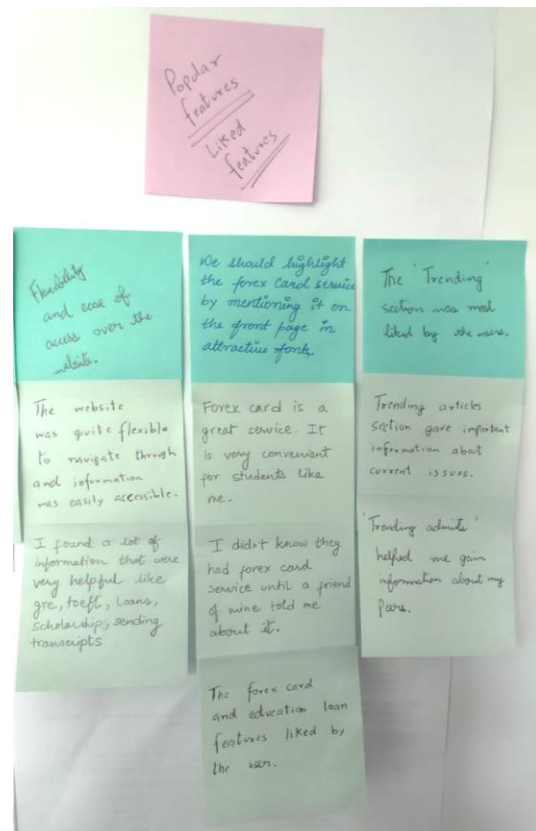 Popular
features
Liked
features
Flexibility
and ease of
access over the
website.
The website
was quite flexible
to navigate through
and information
was easily accessible.
I found a lot of
information that were
very helpful like
gre, toeft, Loans,
scholarship, sending
transcripts
We should highlight
the forex card service
by mentioning it on
the front page in
attractive fonts.
Forex card is a
great service. It
is very convenient
for students like
me.
I didn't know they
had forex card
service until a friend
of mine told me
about it.
The forex card
and education loan
features liked by
the user.
The 'Trending'
section was most
liked by the users.
Trending articles
section gave important
information about
current issues.
'Trending admits'
helped me gain
information about my